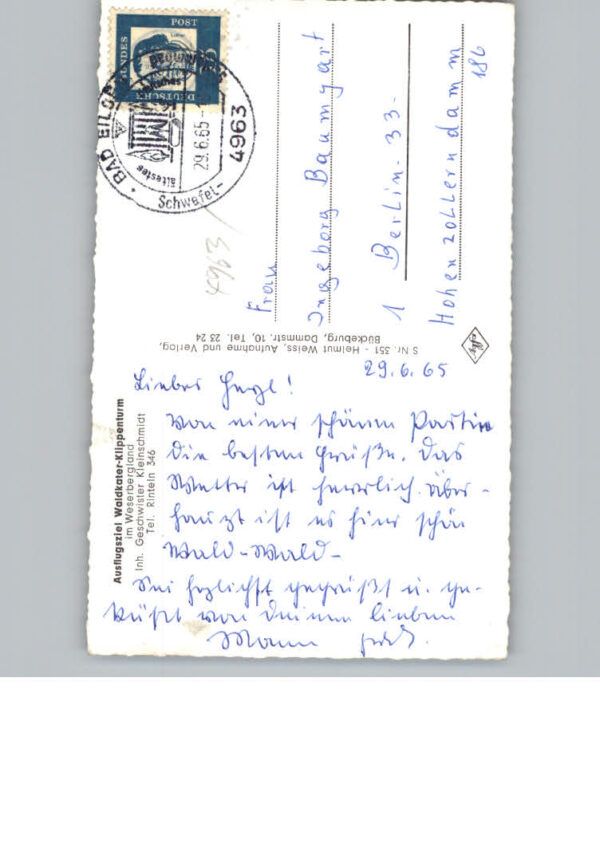 DEUTSCHE BUNDESPOST
BAD EILSEN
29.6.65
4963
ältestes
Schwefel-
4963
Frau
Ingeborg Baumgart
1 Berlin-33-
Hohenzollerndamm
186
S Nr. 351 - Helmut Weiss, Aufnahme und Verlag,
Bückeburg, Dammstr. 10, Tel. 23 24
Ausflugsziel Waldkater-Klippenturm
im Weserbergland
Inh. Geschwister Kleinschmidt
Tel. Rinteln 346
29.6.65
Liebes
Von einer schönen Partie
die besten Grüße. Das
Wetter ist herrlich. Über-
haupt ist es hier schön
Wald-Wald-
Sei herzlichst gegrüßt u. ge-
küßt von deinem lieben
Mann